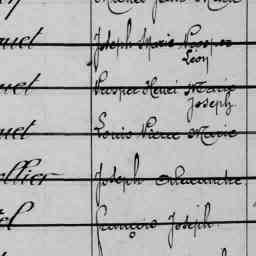 Michel Jean Marie
uet Joseph Marie Prosper
Léon
uet Prosper Henri Marie
Joseph
uet Louis Pierre Marie
llier Joseph Alexandre
el François Joseph